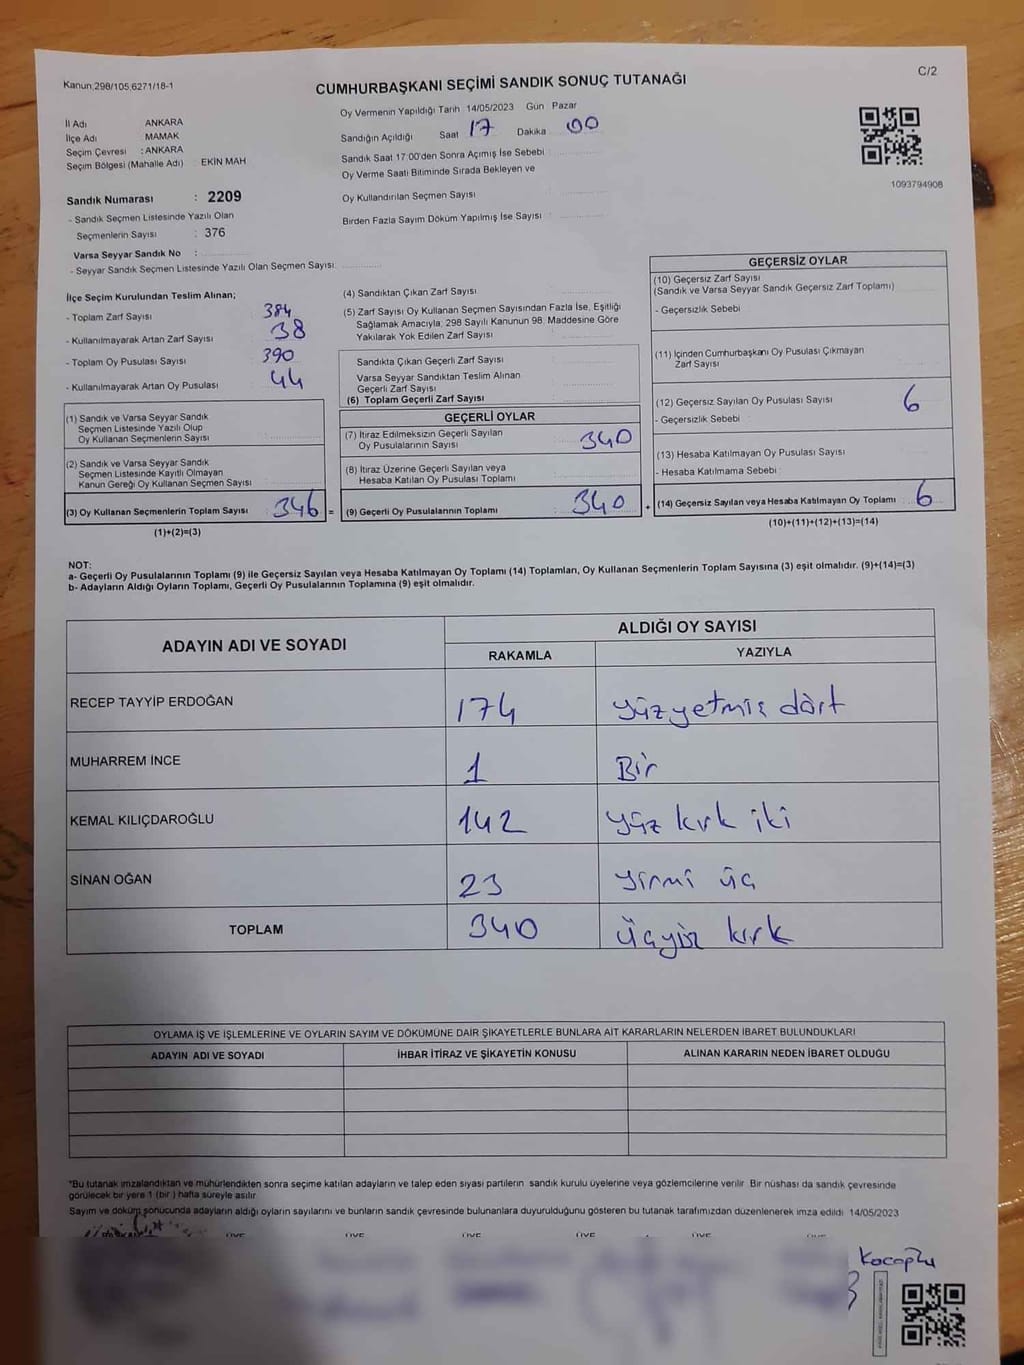 Kanun,298/105,6271/18-1
C/2
CUMHURBAŞKANI SEÇİMİ SANDIK SONUÇ TUTANAĞI
Oy Vermenin Yapıldığı Tarih 14/05/2023 Gün Pazar
Sandığın Açıldığı Saat 17 Dakika 00
Sandık Saat 17:00'den Sonra Açımış İse Sebebi
Oy Verme Saati Bitiminde Sırada Bekleyen ve
Oy Kullandırılan Seçmen Sayısı
Birden Fazla Sayım Döküm Yapılmış İse Sayısı
1093794908
İl Adı ANKARA
İlçe Adı MAMAK
Seçim Çevresi : ANKARA
Seçim Bölgesi (Mahalle Adı) EKİN MAH
Sandık Numarası : 2209
- Sandık Seçmen Listesinde Yazılı Olan
Seçmenlerin Sayısı : 376
Varsa Seyyar Sandık No :
- Seyyar Sandık Seçmen Listesinde Yazılı Olan Seçmen Sayısı:
İlçe Seçim Kurulundan Teslim Alınan;
- Toplam Zarf Sayısı 384
- Kullanılmayarak Artan Zarf Sayısı 38
- Toplam Oy Pusulası Sayısı 390
- Kullanılmayarak Artan Oy Pusulası 44
(1) Sandık ve Varsa Seyyar Sandık
Seçmen Listesinde Yazılı Olup
Oy Kullanan Seçmenlerin Sayısı :
(2) Sandık ve Varsa Seyyar Sandık
Seçmen Listesinde Kayıtlı Olmayan
Kanun Gereği Oy Kullanan Seçmen Sayısı
(3) Oy Kullanan Seçmenlerin Toplam Sayısı : 346 =
(1)+(2)=(3)
(4) Sandıktan Çıkan Zarf Sayısı
(5) Zarf Sayısı Oy Kullanan Seçmen Sayısından Fazla İse, Eşitliği
Sağlamak Amacıyla, 298 Sayılı Kanunun 98. Maddesine Göre
Yakılarak Yok Edilen Zarf Sayısı
Sandıkta Çıkan Geçerli Zarf Sayısı
Varsa Seyyar Sandıktan Teslim Alınan
Geçerli Zarf Sayısı
(6) Toplam Geçerli Zarf Sayısı
GEÇERLİ OYLAR
(7) İtiraz Edilmeksizin Geçerli Sayılan
Oy Pusulalarının Sayısı 340
(8) İtiraz Üzerine Geçerli Sayılan veya
Hesaba Katılan Oy Pusulası Toplamı
(9) Geçerli Oy Pusulalarının Toplamı 340 +
GEÇERSİZ OYLAR
(10) Geçersiz Zarf Sayısı
(Sandık ve Varsa Seyyar Sandık Geçersiz Zarf Toplamı)
- Geçersizlik Sebebi
(11) İçinden Cumhurbaşkanı Oy Pusulası Çıkmayan
Zarf Sayısı
(12) Geçersiz Sayılan Oy Pusulası Sayısı 6
- Geçersizlik Sebebi
(13) Hesaba Katılmayan Oy Pusulası Sayısı
- Hesaba Katılmama Sebebi
(14) Geçersiz Sayılan veya Hesaba Katılmayan Oy Toplamı : 6
(10)+(11)+(12)+(13)=(14)
NOT:
a- Geçerli Oy Pusulalarının Toplamı (9) ile Geçersiz Sayılan veya Hesaba Katılmayan Oy Toplamı (14) Toplamları, Oy Kullanan Seçmenlerin Toplam Sayısına (3) eşit olmalıdır. (9)+(14)=(3)
b- Adayların Aldığı Oyların Toplamı, Geçerli Oy Pusulalarının Toplamına (9) eşit olmalıdır.
ADAYIN ADI VE SOYADI ALDIĞI OY SAYISI
RAKAMLA YAZIYLA
RECEP TAYYİP ERDOĞAN 174 yüzyetmiş dört
MUHARREM İNCE 1 Bir
KEMAL KILIÇDAROĞLU 142 yüz kırk iki
SİNAN OĞAN 23 yirmi üç
TOPLAM 340 üçyüz kırk
OYLAMA İŞ VE İŞLEMLERİNE VE OYLARIN SAYIM VE DÖKÜMÜNE DAİR ŞİKAYETLERLE BUNLARA AİT KARARLARIN NELERDEN İBARET BULUNDUKLARI
ADAYIN ADI VE SOYADI İHBAR İTİRAZ VE ŞİKAYETİN KONUSU ALINAN KARARIN NEDEN İBARET OLDUĞU
*Bu tutanak imzalandıktan ve mühürlendikten sonra seçime katılan adayların ve talep eden siyasi partilerin sandık kurulu üyelerine veya gözlemcilerine verilir. Bir nüshası da sandık çevresinde
görülecek bir yere 1 (bir) hafta süreyle asılır
Sayım ve döküm sonucunda adayların aldığı oyların sayılarını ve bunların sandık çevresinde bulunanlara duyurulduğunu gösteren bu tutanak tarafımızdan düzenlenerek imza edildi 14/05/2023
ÜYE ÜYE ÜYE ÜYE ÜYE ÜYE